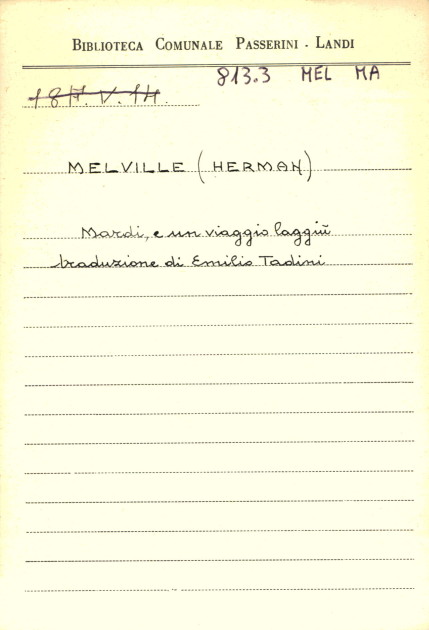 BIBLIOTECA COMUNALE PASSERINI - LANDI
813.3 MEL MA
18 H. V. 14.
MELVILLE (HERMAN)
Mardi, e un viaggio laggiù
traduzione di Emilio Tadini